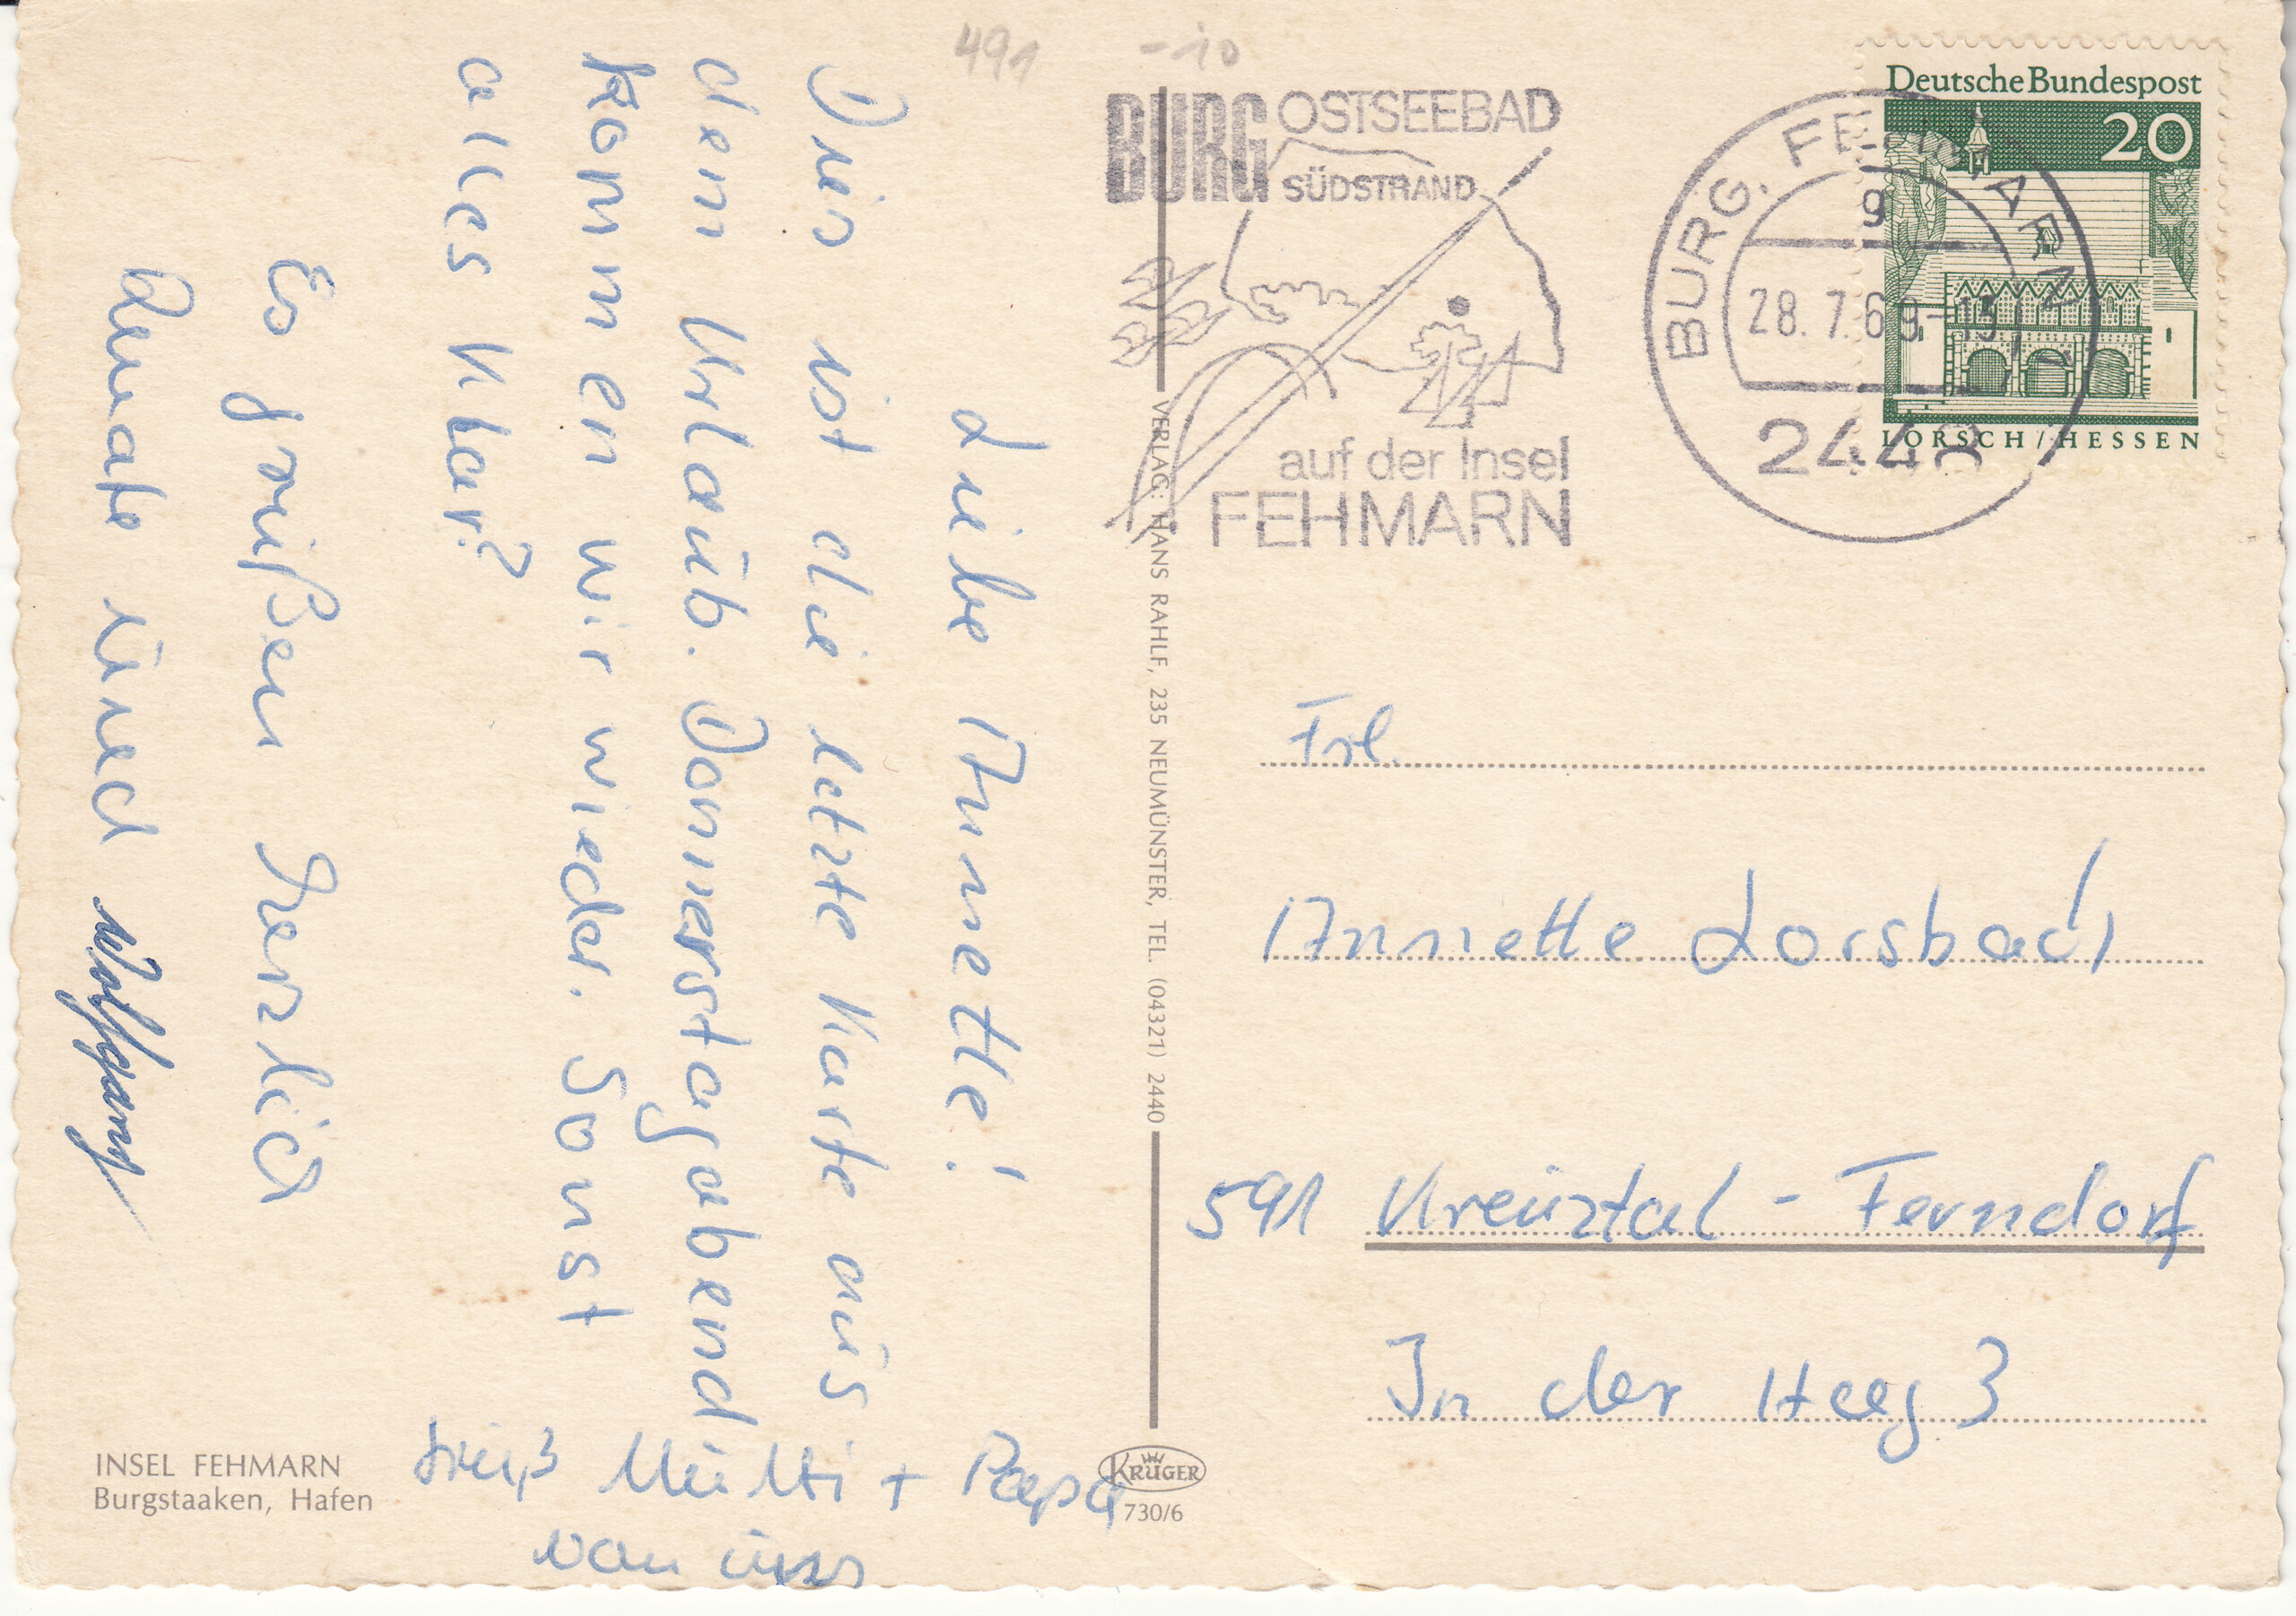 491 -10
Liebe Annette!
Dies ist die letzte Karte aus
dem Urlaub. Donnerstagabend
kommen wir wieder. Sonst
alles klar?
Es grüßen herzlich
Renate und Wolfgang
Grüß Mutti + Papa
von uns
INSEL FEHMARN
Burgstaaken, Hafen
VERLAG: HANS RAHLF, 235 NEUMÜNSTER, TEL. (04321) 2440
KRÜGER
730/6
BURG OSTSEEBAD
SÜDSTRAND
auf der Insel
FEHMARN
BURG, FEHMARN
g
28.7.69-15
2448
Deutsche Bundespost
20
LORSCH/HESSEN
Frl.
Annette Lorsbach
591 Kreuztal - Ferndorf
In der Heeg 3